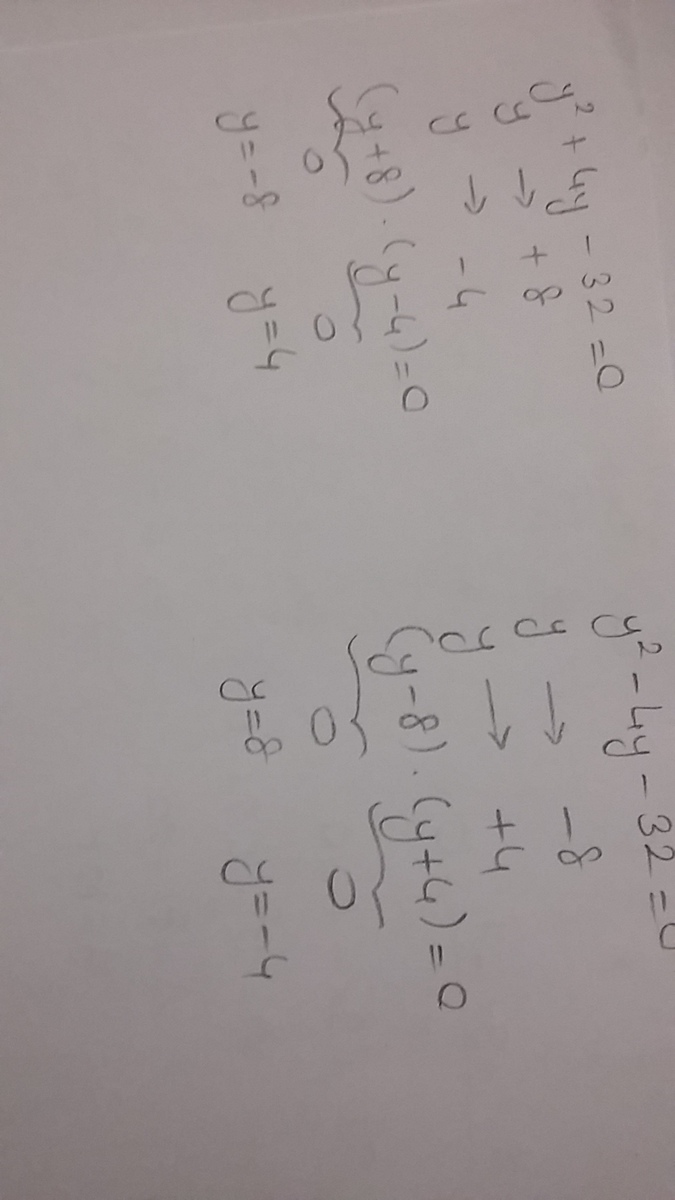 y² + 4y - 32 = 0
y → + 8
y → - 4
(y + 8) . (y - 4) = 0
0 0
y = -8 y = 4
y² - 4y - 32 = 0
y → - 8
y → + 4
(y - 8) . (y + 4) = 0
0 0
y = 8 y = -4